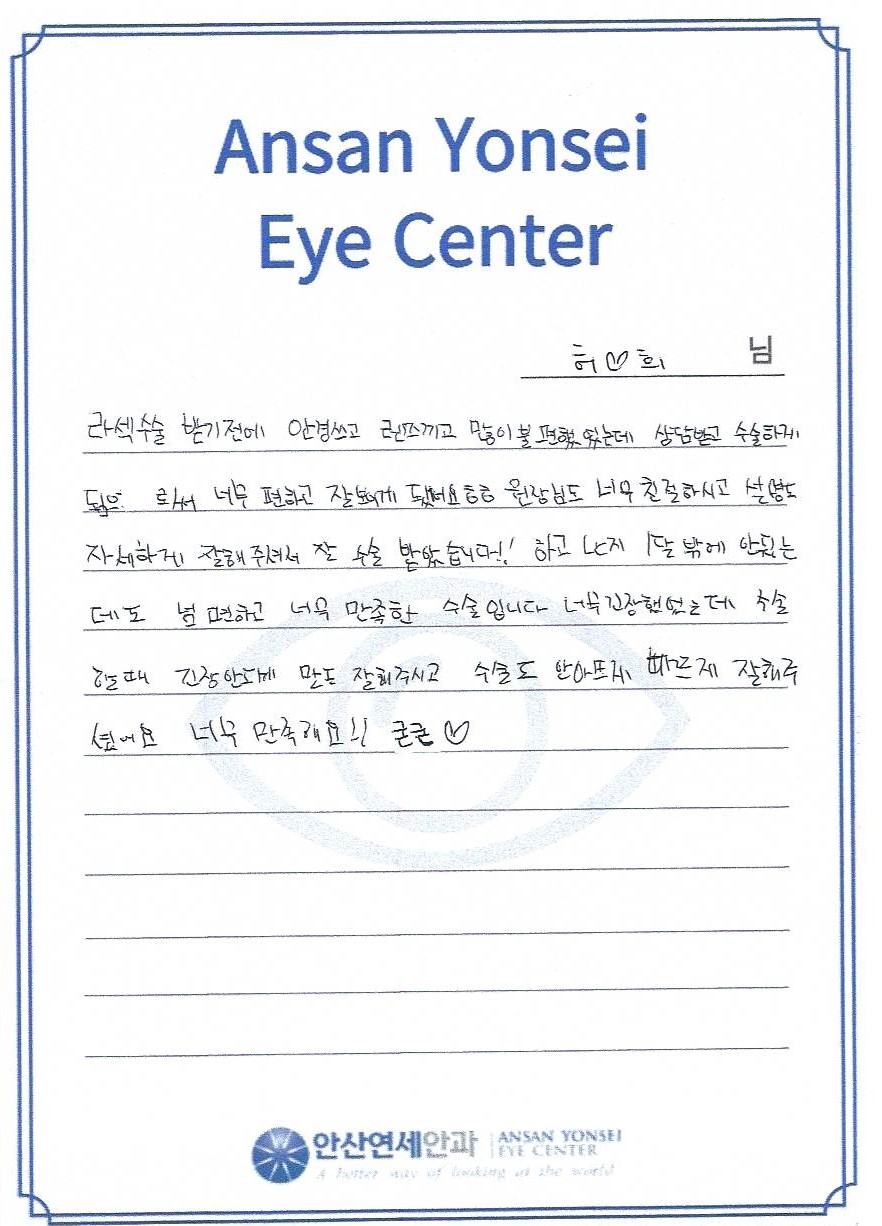 Ansan Yonsei
Eye Center
허♡희 님
라섹수술 받기전에 안경쓰고 렌즈끼고 많이불편했었는데 상담받고 수술하게
됨으로써 너무 편하고 잘보이게 됐어요ㅎㅎ 원장님도 너무 친절하시고 설명도
자세하게 잘해주셔서 잘 수술 받았습니다!! 하고 난지 1달 밖에 안됐는
데도 넘 편하고 너무 만족한 수술입니다 너무긴장했었는데 수술
할때 긴장안되게 말도 잘해주시고 수술도 안아프게 빠르게 잘해주
셨어요 너무 만족해요!! 굳굳♡
안산연세안과 ANSAN YONSEI
EYE CENTER
A better way of looking at the world